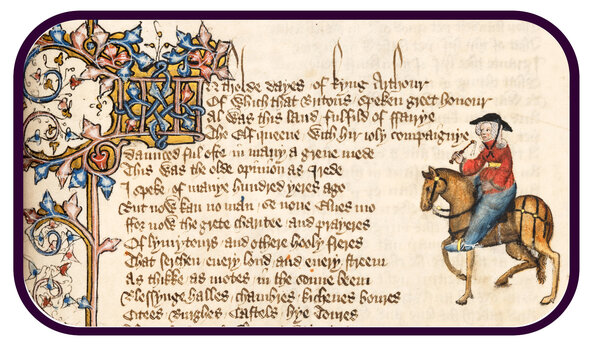 In tholde dayes of kyng Arthour
Of which that Britons speken greet honour
Al was this land fulfild of ffairye
The Elf queene with hir ioly compaignye
Daunced ful ofte in many a grene mede
This was the olde opinion as I rede
I speke of manye hundred yeres ago
But now kan no man se none Elues mo
ffor now the grete charitee and prayeres
Of lymytours and othere hooly freres
That serchen euery lond and euery streem
As thikke as motes in the sonne beem
Blessynge halles / chambres / kichenes boures
Citees / Burghes / Castels / hye Toures